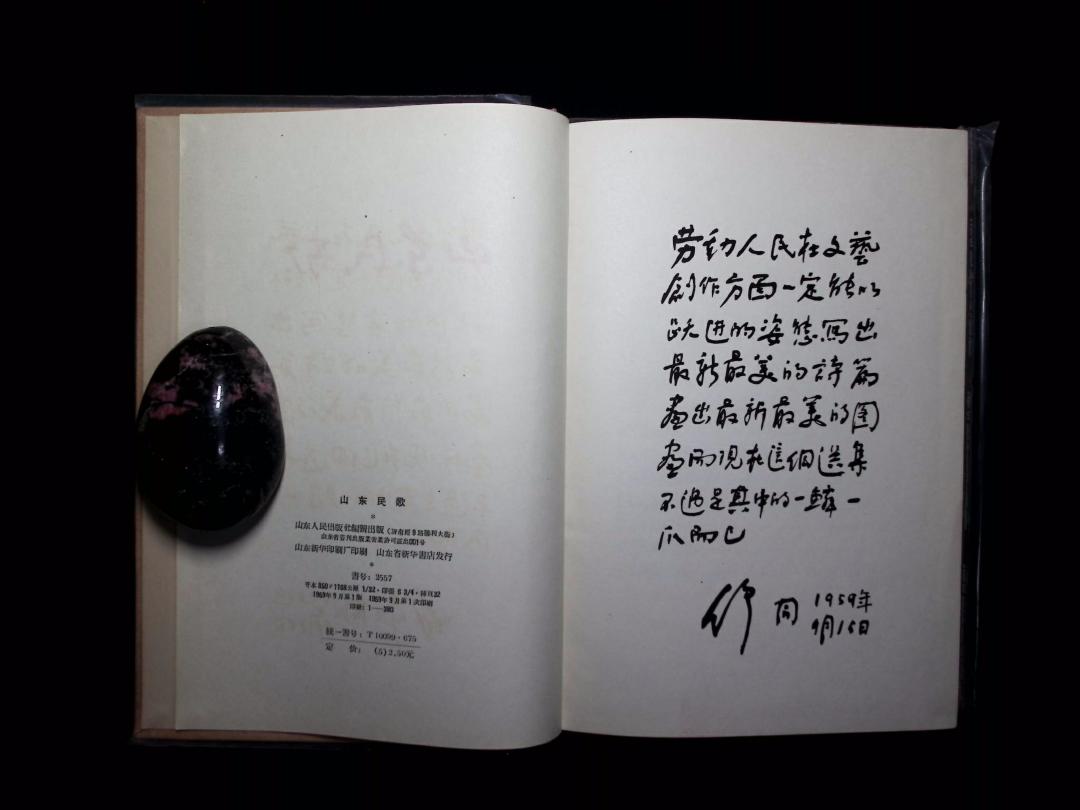 山东民歌
*
山东人民出版社編輯出版（济南經9路勝利大街）
山东省書刊出版業营業許可証出001号
山东新华印刷厂印刷　山东省新华書店发行
*
書号：2557
开本 850×1168公厘 1/32・印張 6 3/4・
1959年9月第1版　1959年9月第1次印刷
印数：1——
統一書号：T 10099・675
定　价：(5)2.50元
劳动人民在文藝
創作方面一定能以
跃进的姿态寫出
最新最美的詩篇
畫出最新最美的图
畫而現在這個选集
不过是其中的一鳞一
爪而已
舒同　1959年
9月15日